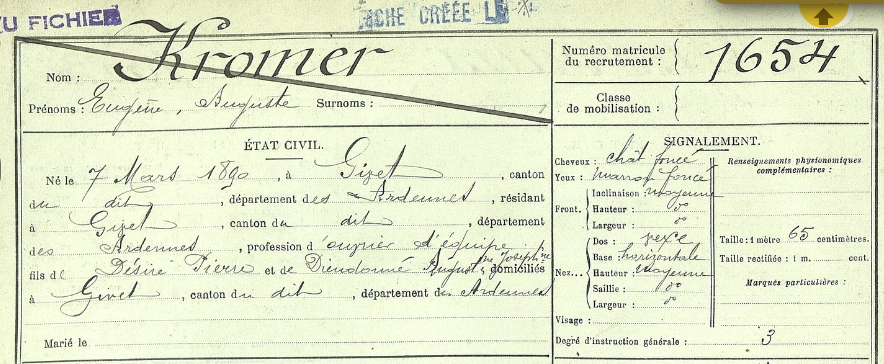 U FICHIER
FICHE CRÉÉE LE
Nom : Kromer
Prénoms : Eugène, Auguste Surnoms :
Numéro matricule du recrutement : 1654
Classe de mobilisation :
ÉTAT CIVIL.
Né le 7 Mars 1890, à Givet, canton
du dit, département des Ardennes, résidant
à Givet, canton du dit, département
des Ardennes, profession d'ouvrier d'équipe
fils de Désiré Pierre et de Dieudonné August^ne Joseph^ne domiciliés
à Givet, canton du dit, département des Ardennes
Marié le
SIGNALEMENT.
Cheveux : chât foncé
Yeux : marron foncé
Front. Inclinaison : moyenne
Hauteur : d°
Largeur : d°
Nez... Dos : vexe
Base : horizontale
Hauteur : moyenne
Saillie : d°
Largeur : d°
Visage :
Renseignements physionomiques complémentaires :
Taille : 1 mètre 65 centimètres.
Taille rectifiée : 1 m. cent.
Marques particulières :
Degré d'instruction générale : 3